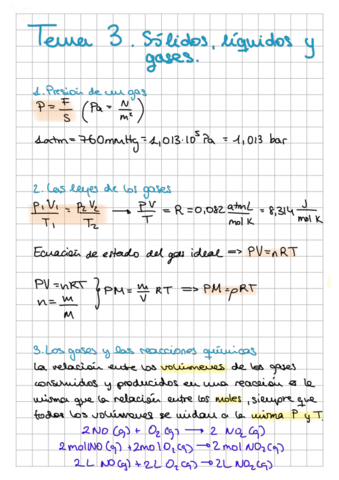 Tema 3. Sólidos, líquidos y
gases.
1. Presión de un gas
P = F/S (Pa = N/m²)
1 atm = 760mmHg = 1,013·10⁵ Pa = 1,013 bar
2. Las leyes de los gases
P₁V₁/T₁ = P₂V₂/T₂ → PV/T = R = 0,082 atmL/mol K = 8,314 J/mol K
Ecuación de estado del gas ideal => PV=nRT
PV=nRT
n = m/M } PM = m/V RT => PM=ρRT
3. Los gases y las reacciones químicas
La relación entre los volúmenes de los gases
consumidos y producidos en una reacción es la
misma que la relación entre los moles, siempre que
todos los volúmenes se midan a la misma P y T.
2NO(g) + O₂(g) → 2 NO₂(g)
2molNO(g) + 2mol O₂(g) → 2 mol NO₂(g)
2L NO(g) + 2L O₂(g) → 2L NO₂(g)